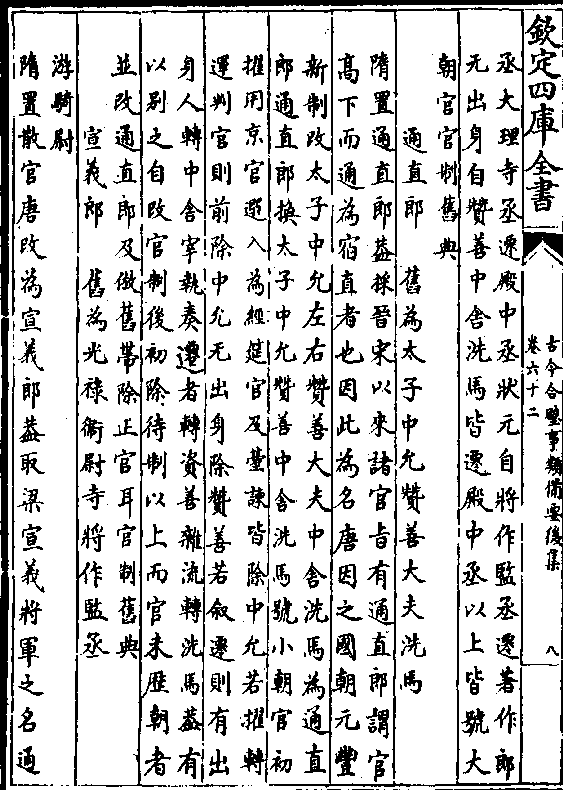 欽定四庫全書
古今合璧事類備要後集
卷六十二
八
丞大理寺丞遷殿中丞狀元自將作監丞遷著作郎
无出身自贊善中舍洗馬皆遷殿中丞以上皆號大
朝官官制舊典
通直郎 舊為太子中允贊善大夫洗馬
隋置通直郎葢採晉宋以來諸官皆有通直郎謂官
髙下而通為宿直者也因此為名唐因之國朝元豐
新制改太子中允左右贊善大夫中舍洗馬為通直
郎通直郎換太子中允贊善中舍洗馬號小朝官初
擢用京官選入為經筵官及臺諫皆除中允若擢轉
運判官則前除中允无出身除贊善若叙遷則有出
身人轉中舍宰執奏遷者轉資善雜流轉洗馬葢有
以别之自改官制後初除待制以上而官未歴朝者
並改通直郎及倣舊帶除正官耳官制舊典
宣義郎 舊為光禄衛尉寺將作監丞
游騎尉
隋置散官唐改為宣義郎葢取梁宣義將軍之名通